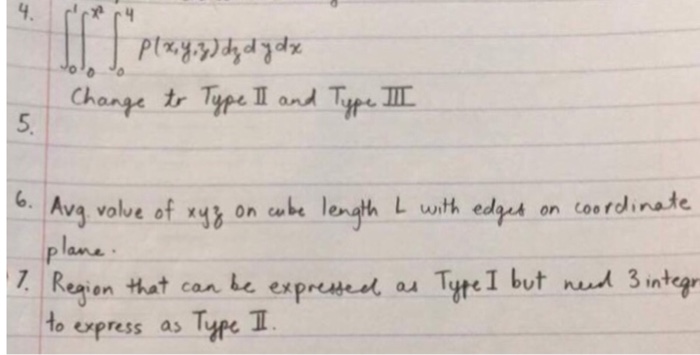 4. ∫₀¹ ∫₀^x² ∫₀⁴ P(x,y,z) dz dy dx
Change to Type II and Type III
5.
6. Avg. value of xyz on cube length L with edges on coordinate
plane.
7. Region that can be expressed as Type I but need 3 integr
to express as Type II.